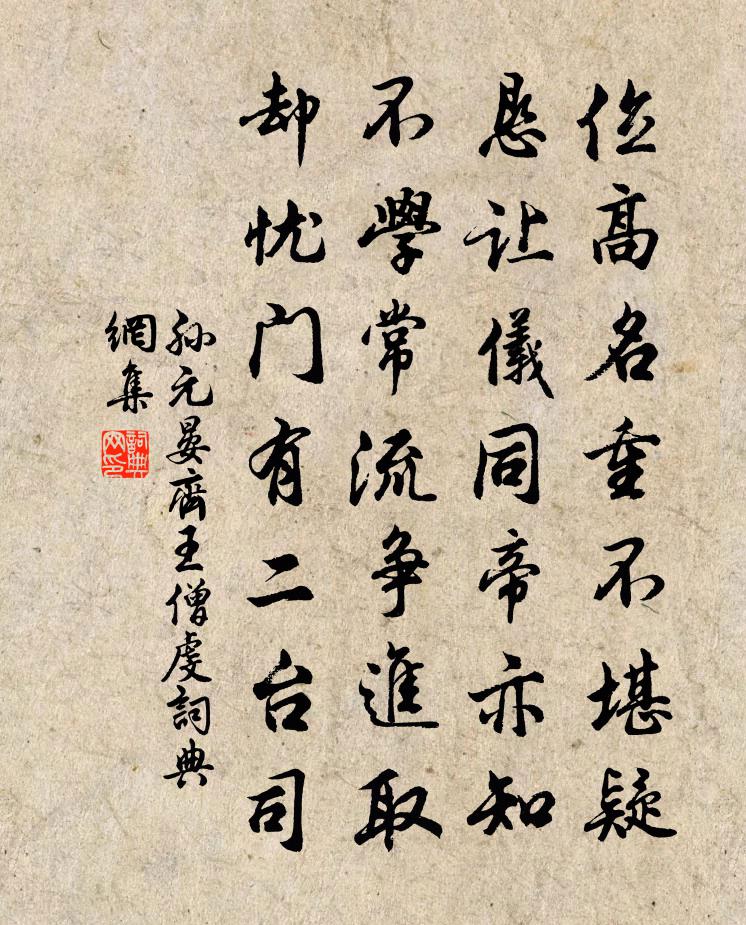 位高名重不堪疑
恳让儀同帝亦知
不學常流争進取
却忧门有二台司
孙元晏齊王僧虔詞典
網集
詞典
网印